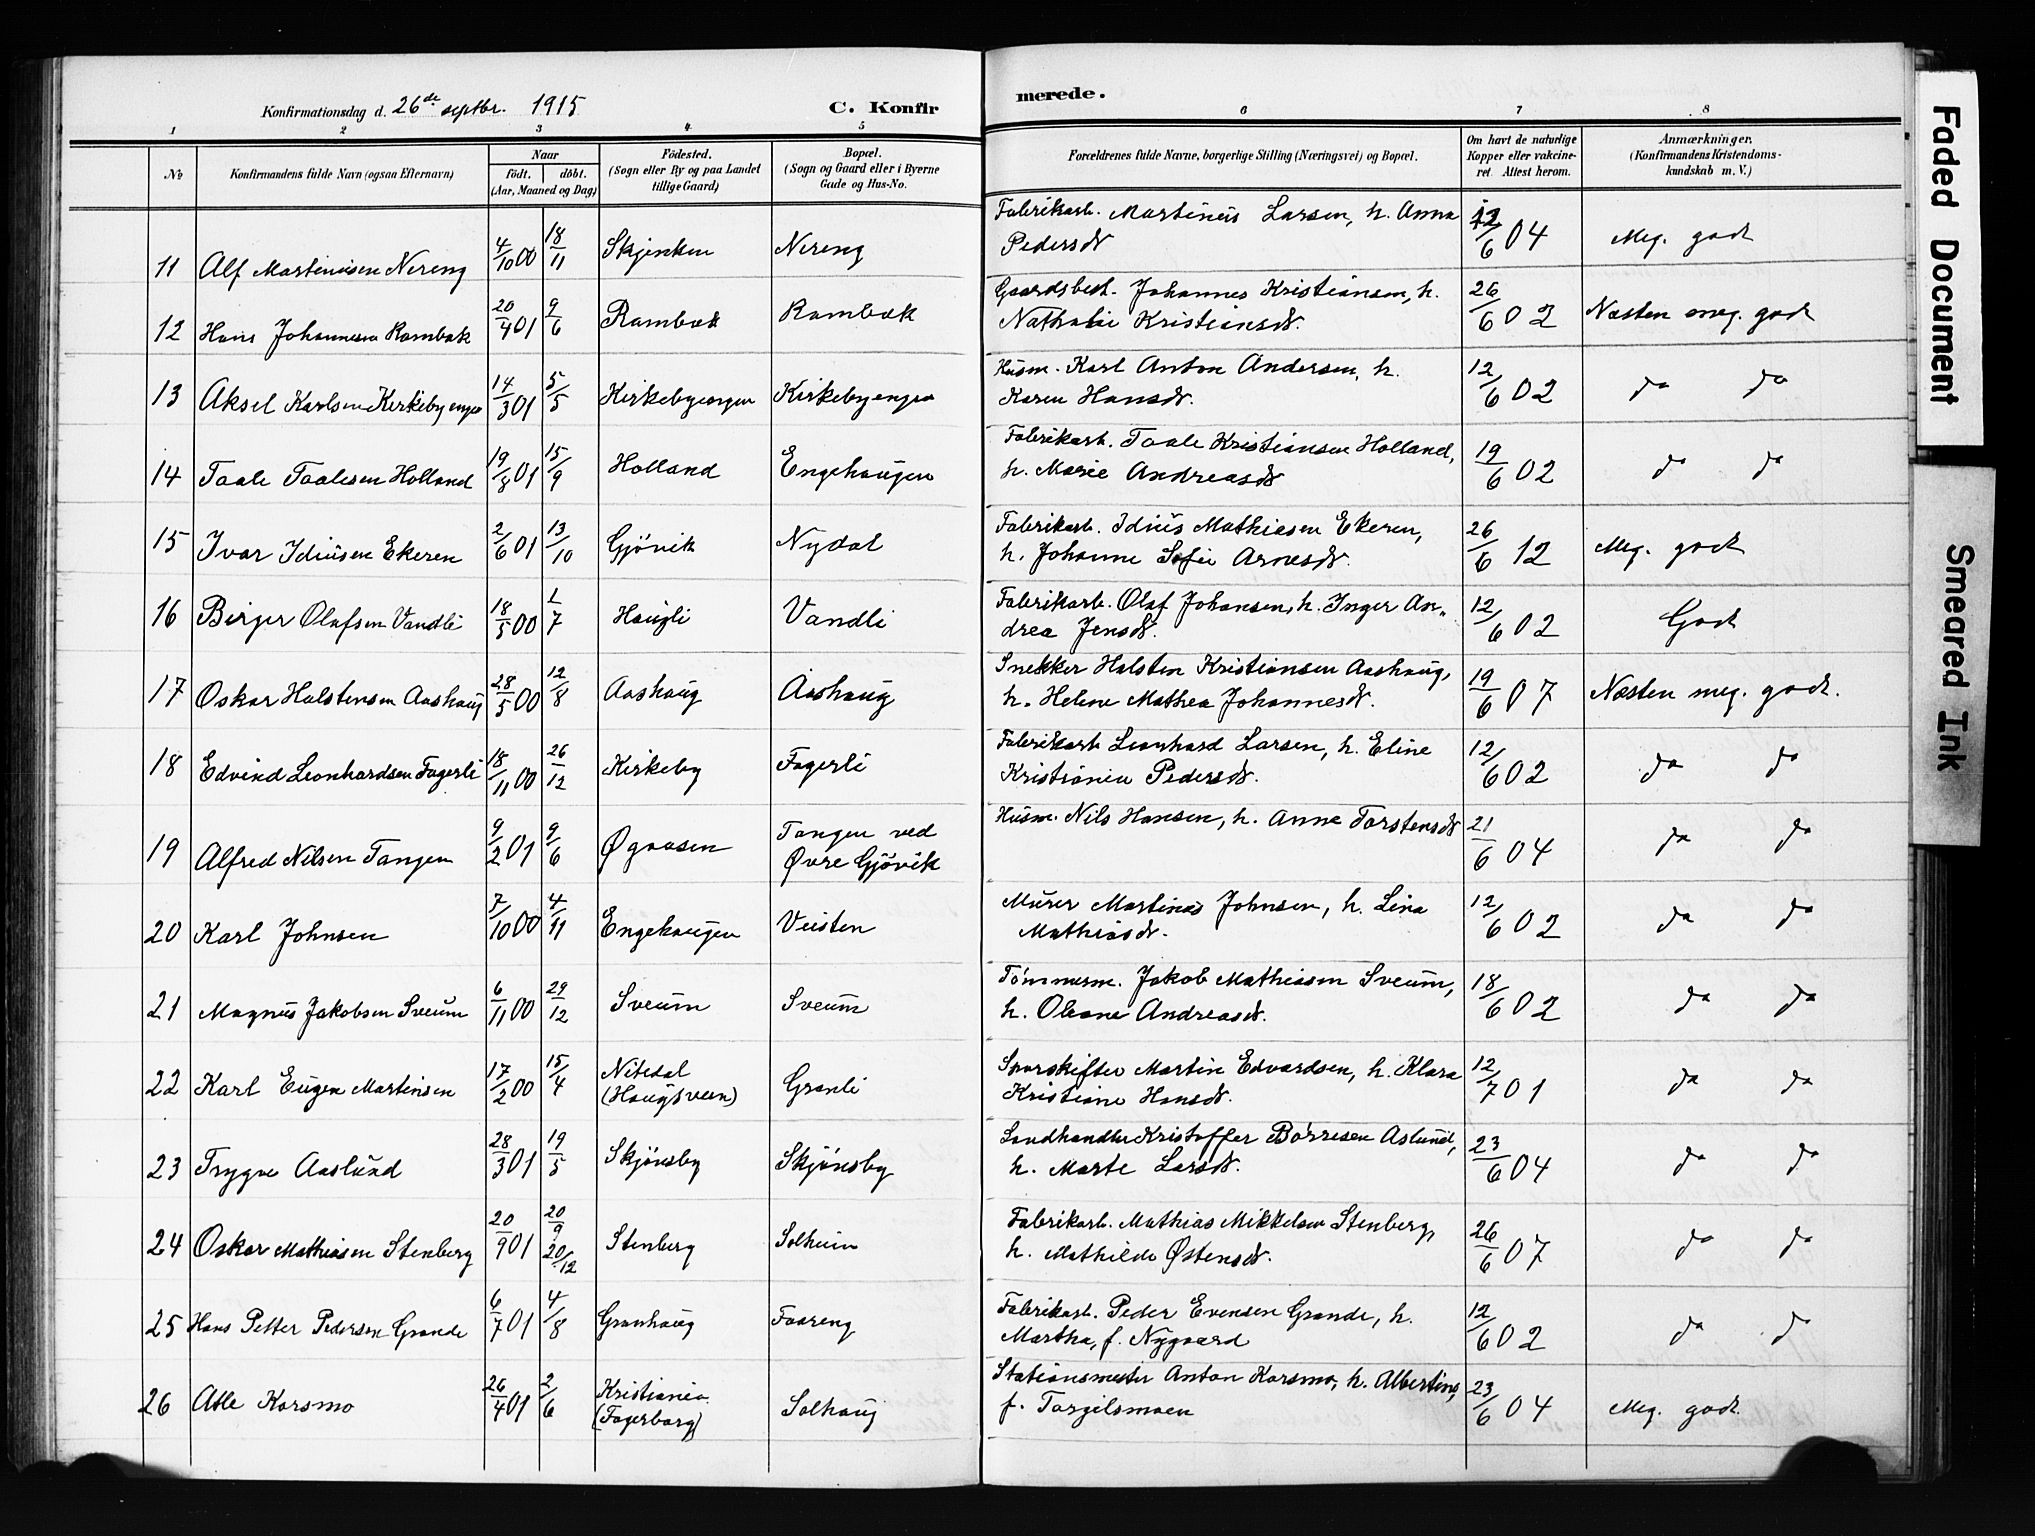 Konfirmationsdag d. 26de septbr. 1915 C. Konfir merede.
1 2 3 4 5 6 7 8
No Konfirmandens fulde Navn (ogsaa Efternavn) Naar födt. döbt. (Aar, Maaned og Dag) Födested. (Sogn eller By og paa Landet tillige Gaard) Bopæl. (Sogn og Gaard eller i Byerne Gade og Hus-No. Forældrenes fulde Navne, borgerlige Stilling (Næringsvei) og Bopæl. Om havt de naturlige Kopper eller vakcineret. Attest herom. Anmærkninger. (Konfirmandens Kristendomskundskab m. V.)
11 Alf Martinusen Nereng 4/10 00 18/11 Skjenken Nereng Fabrikarb. Martinius Larsen, h. Anna
Pedersdt 12/6 04 Meg. godt
12 Hans Johannesen Rambæk 20/4 01 9/6 Rambæk Rambæk Gaardsbest. Johannes Kristiansen, h.
Nathalie Kristiansdt. 26/6 02 Næsten meg. godt
13 Aksel Karlsen Kirkebyengen 14/3 01 5/5 Kirkebyengen Kirkebyengen Husm. Karl Anton Andersen, h.
Karen Hansdt. 12/6 02 da da
14 Taale Taalesen Holland 19/8 01 15/9 Holland Engehaugen Fabrikarb. Taale Kristiansen Holland,
h. Marie Andreasdt 19/6 02 da da
15 Ivar Idiusen Ekeren 2/6 01 13/10 Gjövik Nydal Fabrikarb. Idius Mathiasen Ekeren,
h. Johanne Sofie Arnesdt. 26/6 12 Meg. godt
16 Birger Olafsen Vandli 18/5 00 1/7 Haugli Vandli Fabrikarb. Olaf Johansen, h. Inger An-
drea Jensdt. 12/6 02 Godt
17 Oskar Halstensen Aashaug 28/5 00 12/8 Aashaug Aashaug Snekker Halsten Kristiansen Aashaug,
h. Helene Mathea Johannesdt. 19/6 07 Næsten meg. godt.
18 Edvind Leonhardsen Fagerli 18/11 00 26/12 Kirkeby Fagerli Fabrikarb Leonhard Larsen, h. Eline
Kristiania Pedersdt. 12/6 02 da da
19 Alfred Nilsen Tangen 9/2 01 9/6 Øgaasen Tangen ved
Øvre Gjövik Husm. Nils Hansen, h. Anne Torstensdt 21/6 04 da da
20 Karl Johnsen 7/10 00 4/11 Engehaugen Veisten Murer Martinus Johnsen, h. Lina
Mathiasdt. 12/6 02 da da
21 Magnus Jakobsen Sveum 6/11 00 29/12 Sveum Sveum Tömmerm. Jakob Mathiasen Sveum,
h. Oleane Andreasdt. 18/6 02 da da
22 Karl Eugen Martinsen 17/2 00 15/4 Nitedal
(Haugsveen) Granli Sporskifter Martin Edvardsen, h. Klara
Kristiane Hansdt. 12/7 01 da da
23 Trygve Aaslund 28/3 01 19/5 Skjönsby Skjönsby Landhandler Kristoffer Börresen Aslund,
h. Marte Larsdt. 23/6 04 da da
24 Oskar Mathiasen Stenberg 20/9 01 20/9 20/12 Stenberg Solheim Fabrikarb. Mathias Mikkelsen Stenberg,
h. Mathilde Østensdt. 26/6 07 da da
25 Hans Petter Pedersen Grande 6/7 01 4/8 Granhaug Faareng Fabrikarb. Peder Evensen Grande, h.
Martha, f. Nygaard 12/6 02 da da
26 Atle Korsmo 26/4 01 2/6 Kristiania
(Fagerborg) Solhaug Stationsmester Anton Korsmo, h. Albertine,
f. Torgilsmoen 23/6 04 Meg. godt.
Faded Document
Smeared Ink